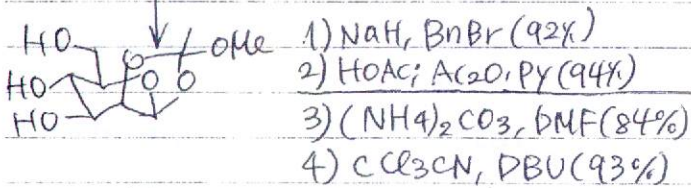 HO
OMe
O
O
O
HO
HO
1) NaH, BnBr (92%)
2) HOAc; Ac2O, Py (94%)
3) (NH4)2CO3, DMF (84%)
4) CCl3CN, DBU (93%)